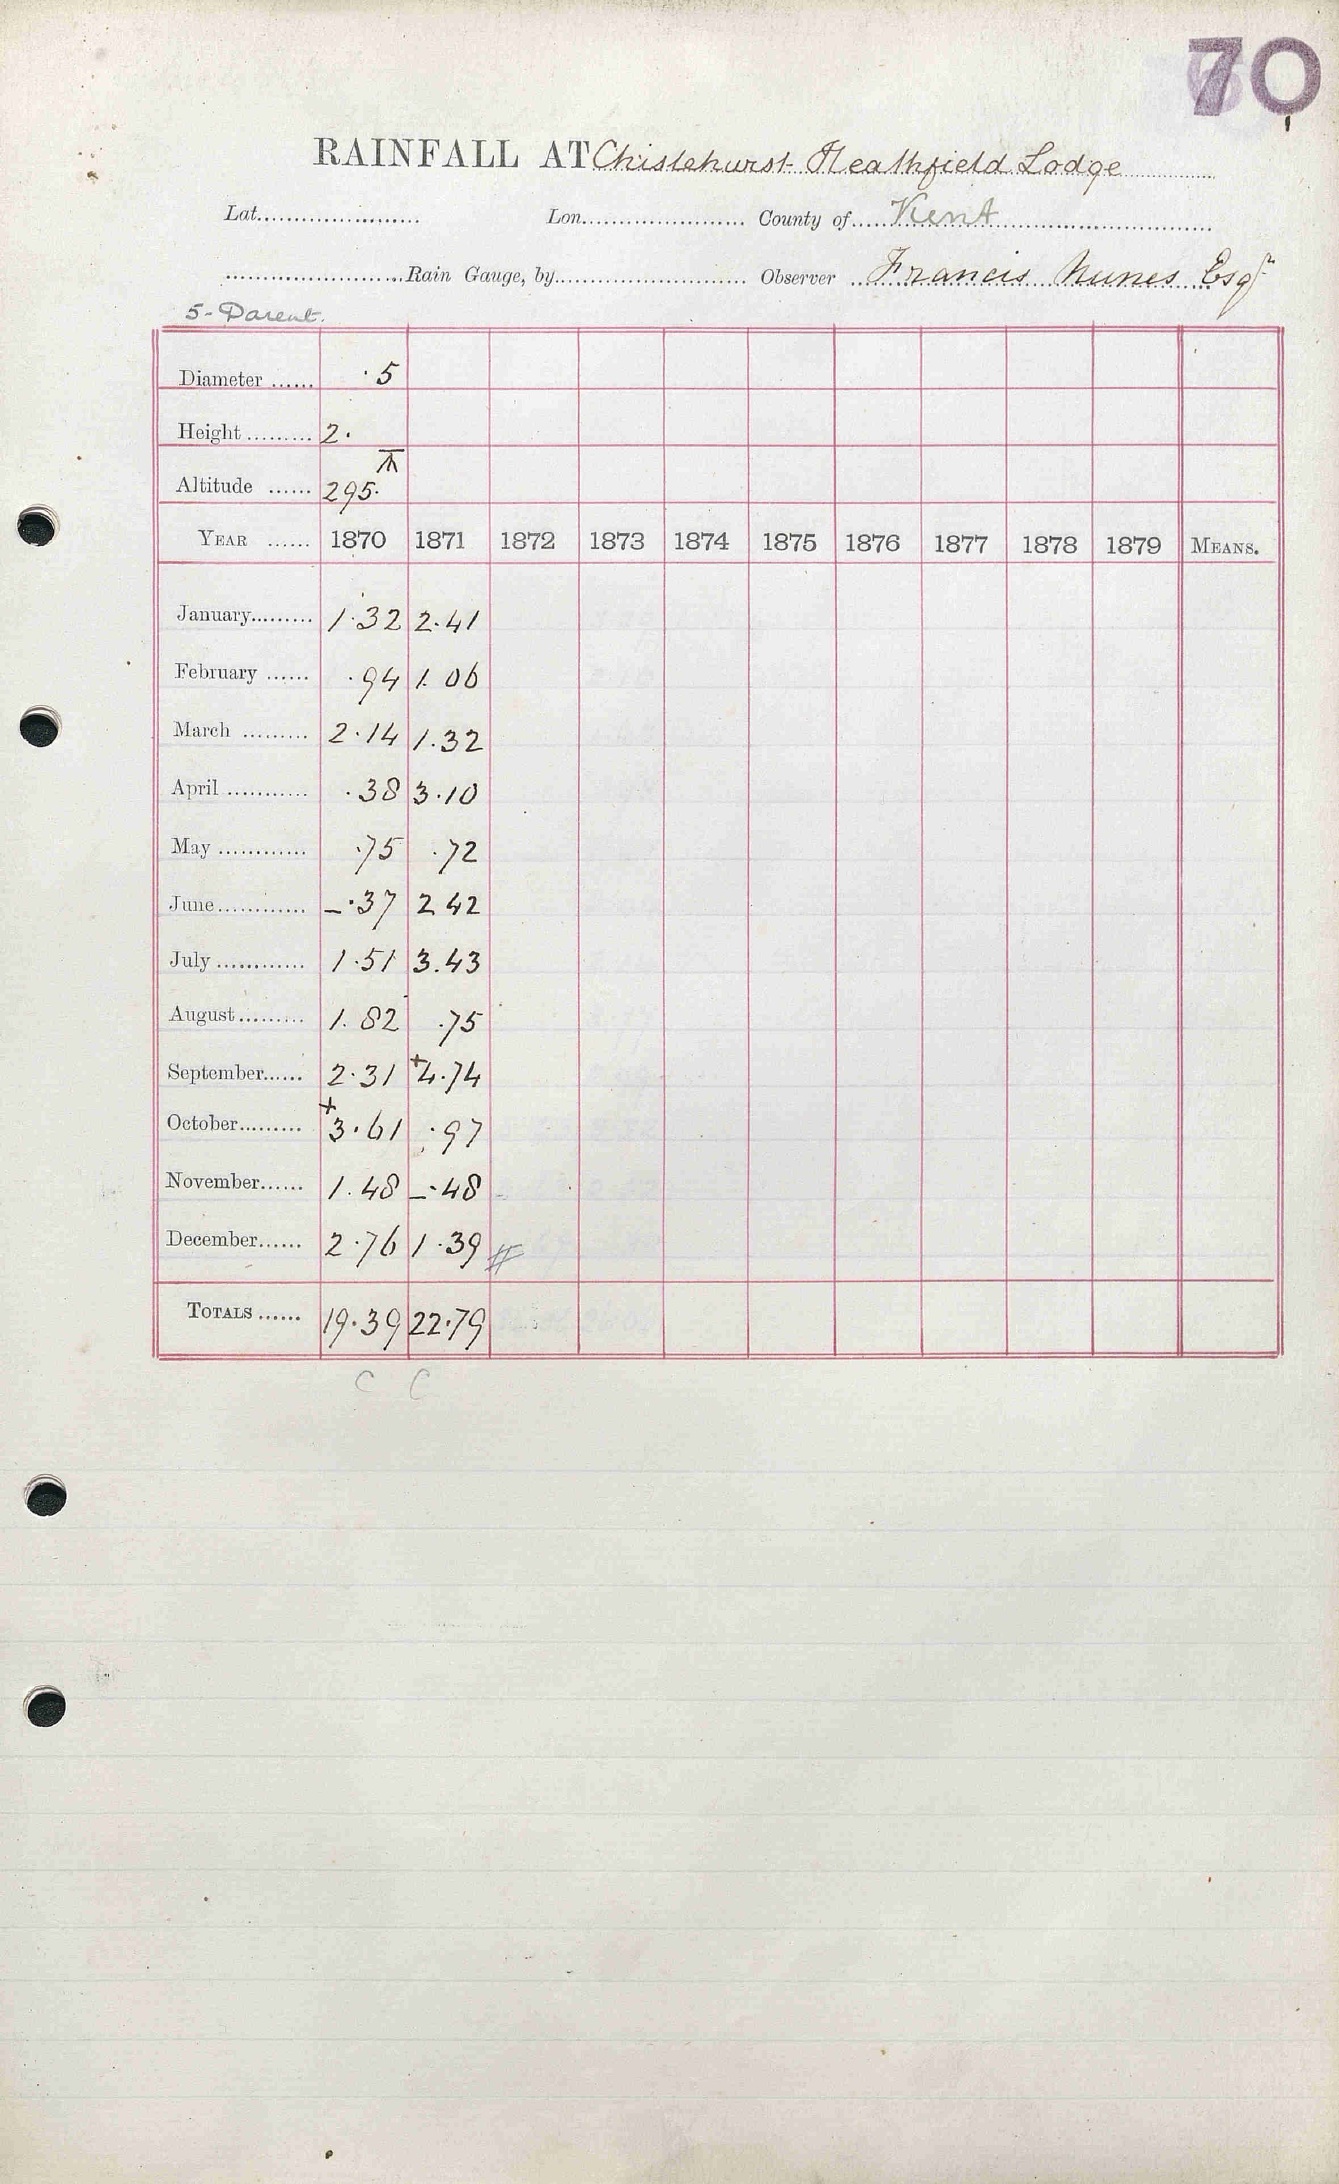 70
RAINFALL AT Chislehurst Heathfield Lodge
Lat...................... Lon...................... County of..... Kent
......................Rain Gauge, by...................... Observer ... Francis Nunes Esqr
5 - Parent.
Diameter ...... .5
Height ......... 2.
Altitude ...... 295.
YEAR ...... 1870 1871 1872 1873 1874 1875 1876 1877 1878 1879 MEANS.
January......... 1.32 2.41
February ...... .94 1.06
March ......... 2.14 1.32
April ........... .38 3.10
May ............ .75 .72
June............ –.37 2 42
July ............ 1.51 3.43
August......... 1.82 .75
September...... 2.31 +4.74
October......... +3.61 .97
November...... 1.48 –.48
December...... 2.76 1.39 #
TOTALS ...... 19.39 22.79
C C